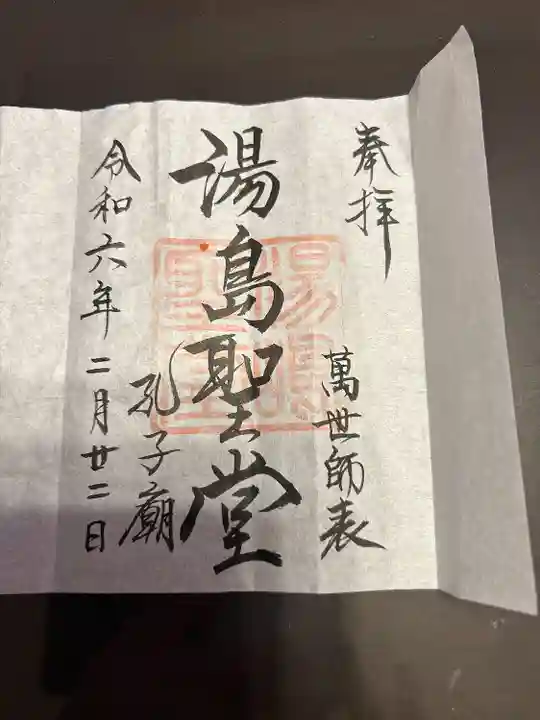 奉拝
萬世師表
湯島聖堂
孔子廟
令和六年二月廿二日
湯島
聖堂